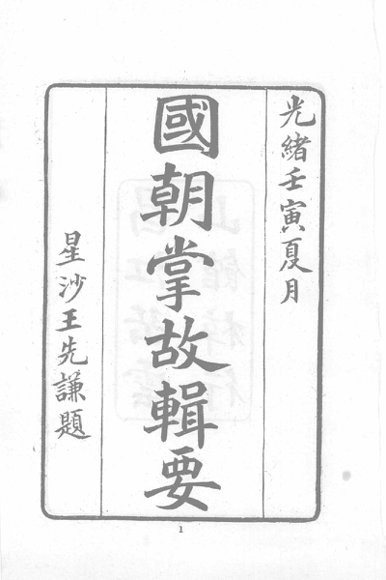 光緒壬寅夏月
國朝掌故輯要
星沙王先謙題
1